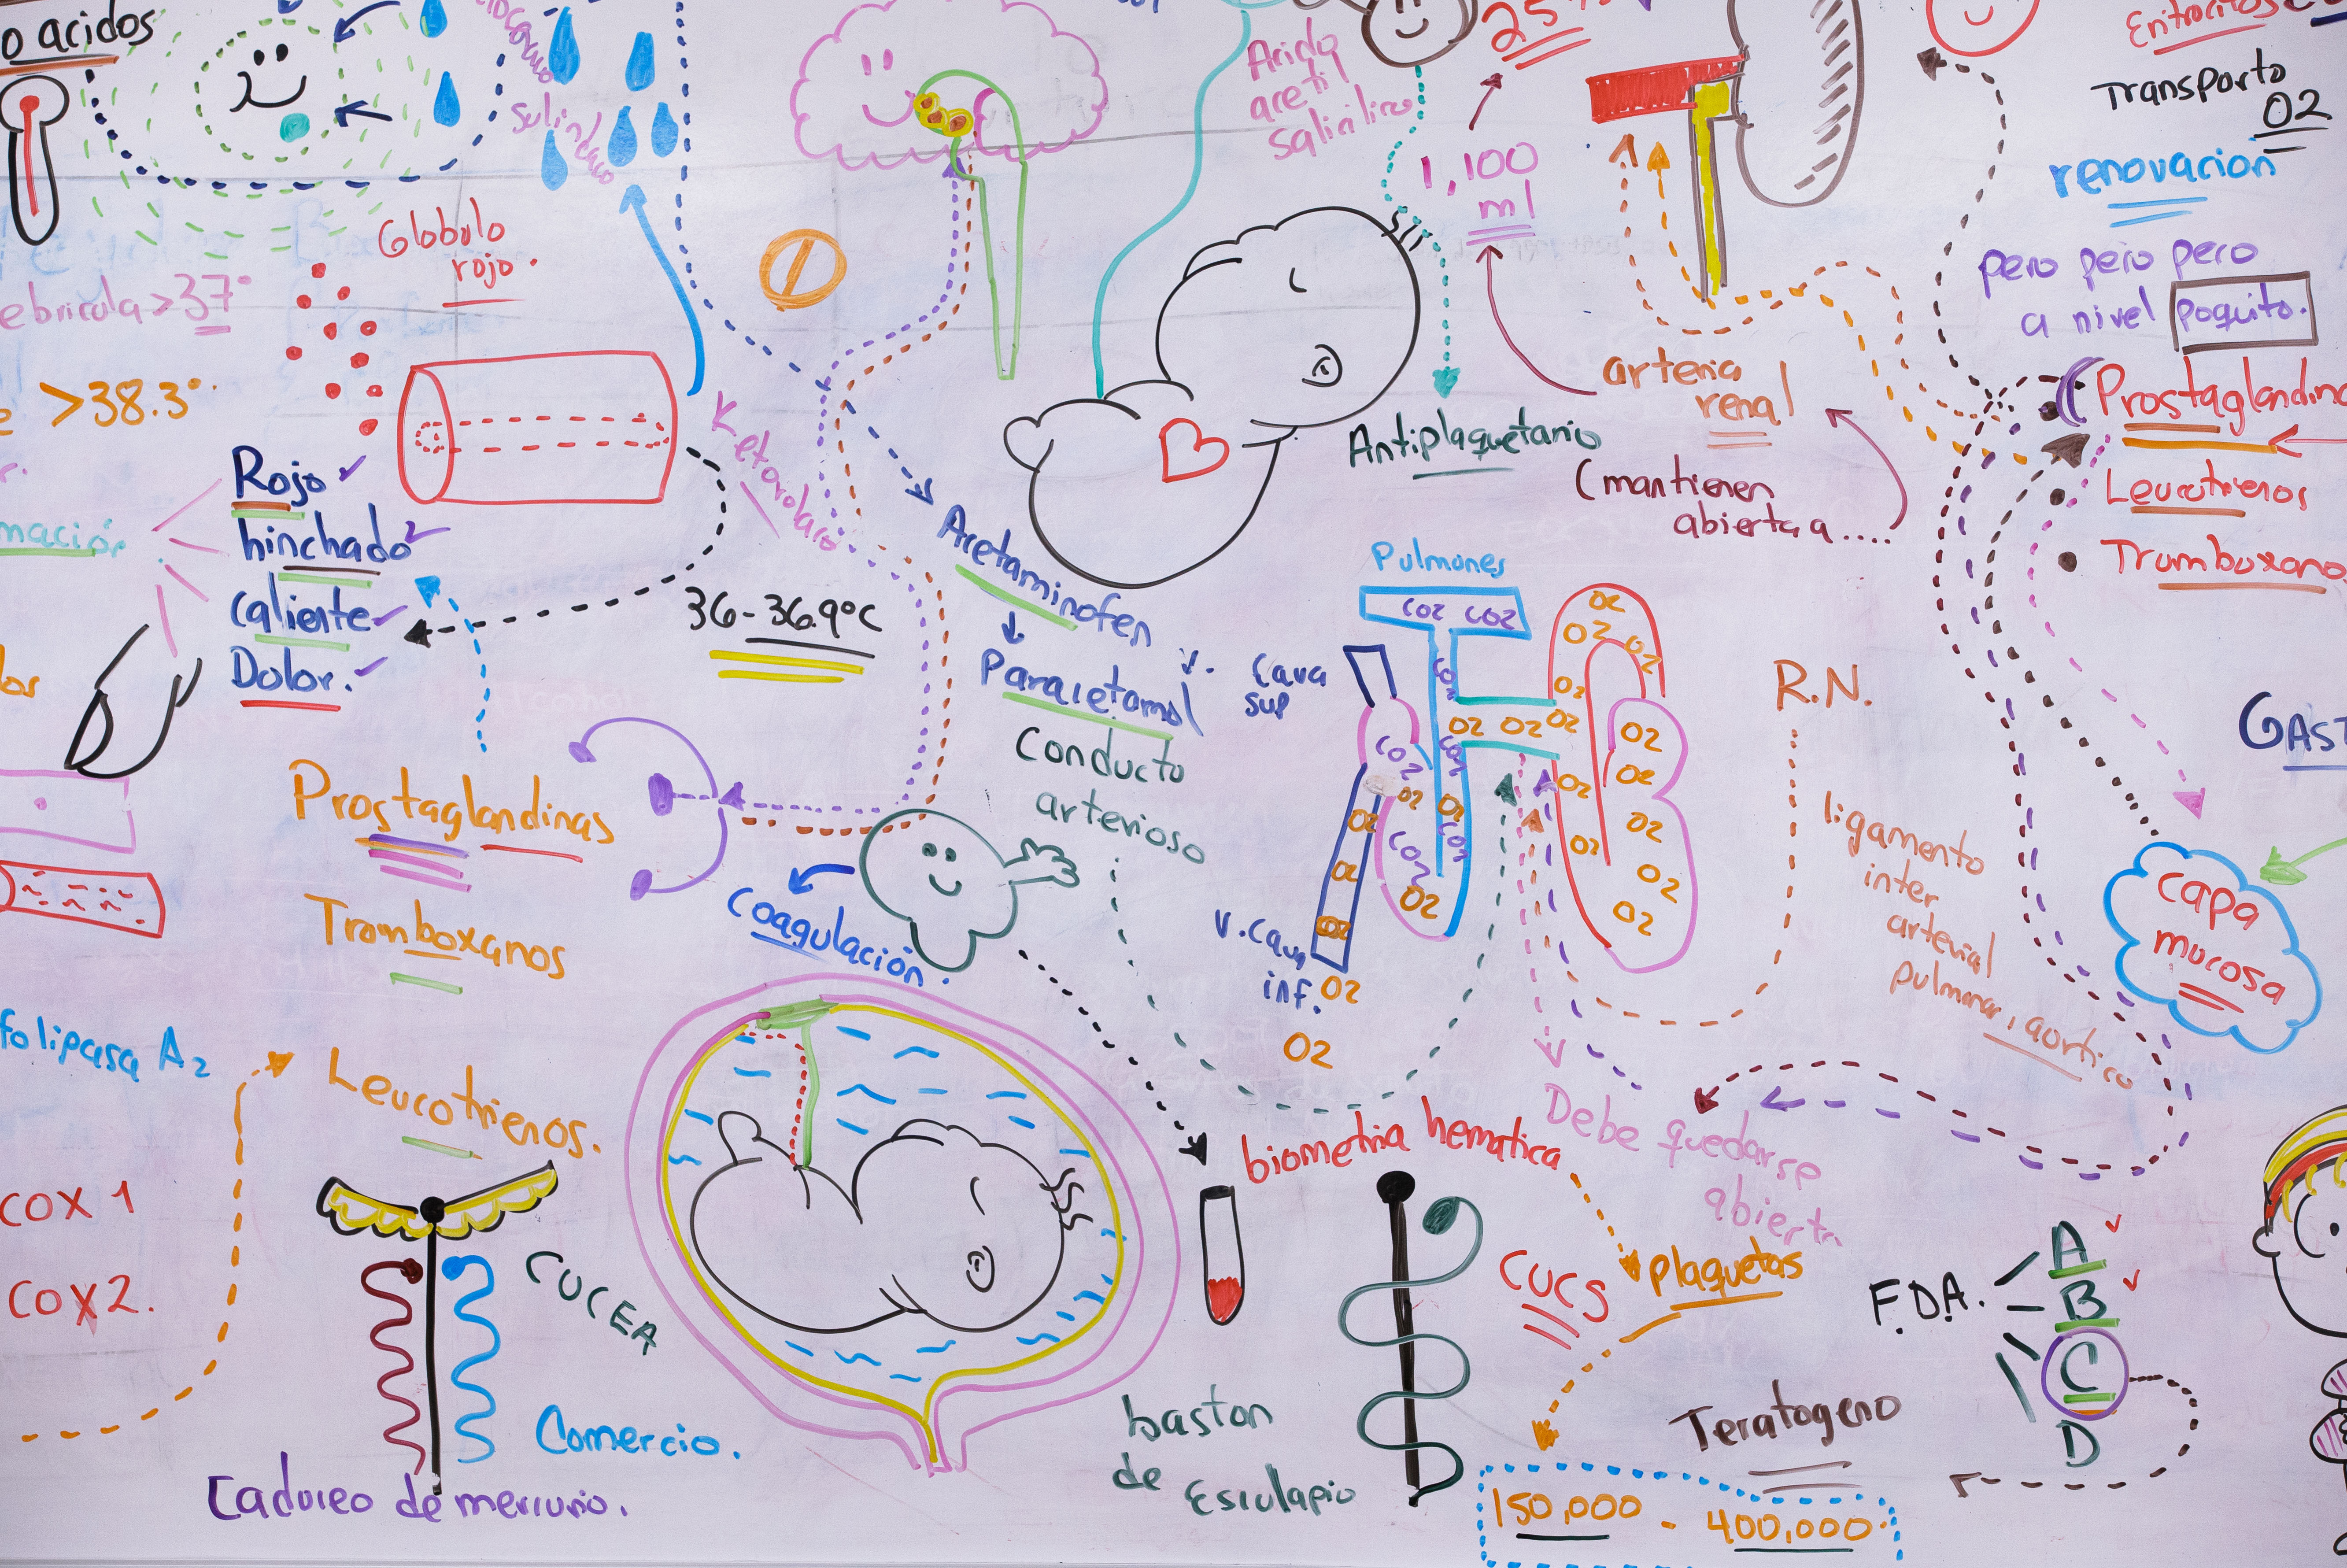 o acidos
sulindaco
Globulo
rojo.
ebricula >37°
>38.3°
mación
Rojo
hinchado
caliente
Dolor.
Ketorolaco
36-36.9°C
Acido
acetil
salicilico
25
1,100
ml
Antiplaquetario
arteria
renal
(mantienen
abierta a ....
Eritrocitos
Transporto
O2
renovación
pero pero pero
a nivel poquito.
Prostaglandina
Leucotrienos
Tromboxano
Acetaminofen
Paracetamol
Conducto
arterioso
Pulmones
CO2 CO2
Cava
sup
V. Cava
inf. O2
O2
O2 O2 O2
R.N.
ligamento
inter
arterial
pulmonar, aortico
GAST
capa
mucosa
Prostaglandinas
Tromboxanos
Leucotrienos.
folipasa A2
COX 1
COX 2.
Coagulación.
biometria hematica
Debe quedarse
abierta
plaquetas
150,000 - 400,000
CUCEA
Comercio.
Caduceo de mercurio.
baston
de Esculapio
CUCS
Teratogeno
F.D.A.
A
B
C
D